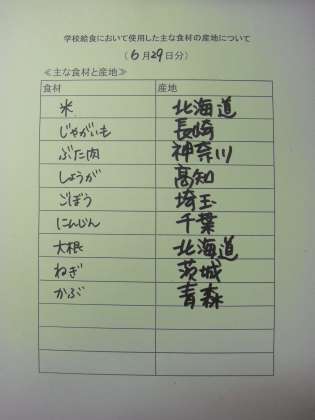 学校給食において使用した主な食材の産地について
（6月29日分）
≪主な食材と産地≫
食材 産地
米 北海道
じゃがいも 長崎
ぶた肉 神奈川
しょうが 高知
ごぼう 埼玉
にんじん 千葉
大根 北海道
ねぎ 茨城
かぶ 青森